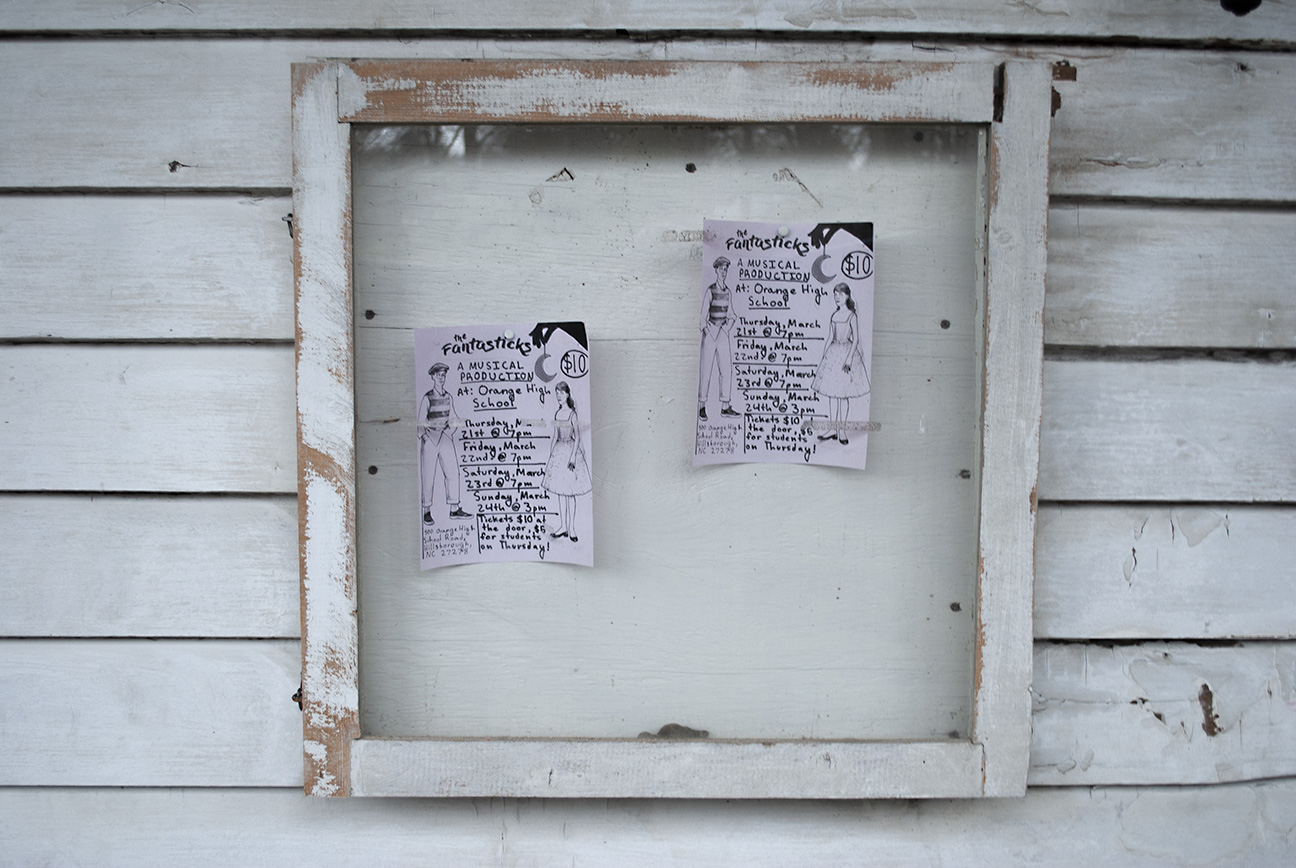 the
Fantasticks
$10
A MUSICAL
PRODUCTION
At: Orange High
School
Thursday,
21st @ 7pm
Friday, March
22nd @ 7pm
Saturday, March
23rd @ 7pm
Sunday, March
24th @ 3pm
Tickets $10 at
the door, $5
for students
on Thursday!
500 Orange High
School Road,
Hillsborough,
NC 27278
the
Fantasticks
$10
A MUSICAL
PRODUCTION
At: Orange High
School
Thursday, March
21st @ 7pm
Friday, March
22nd @ 7pm
Saturday, March
23rd @ 7pm
Sunday, March
24th @ 3pm
Tickets $10
the door, $5
for students
on Thursday!
500 Orange High
School Road,
Hillsborough,
NC 27278